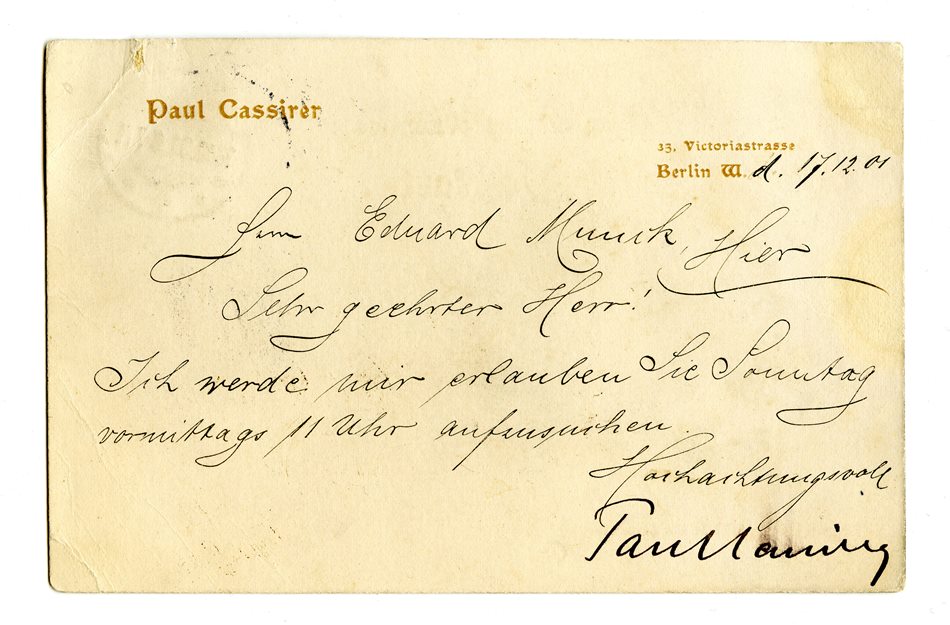 Paul Cassirer
33, Victoriastrasse
Berlin W. d. 17.12.01
Herrn Eduard Munck, Hier
Sehr geehrter Herr!
Ich werde mir erlauben Sie Sonntag
vormittags 11 Uhr aufzusuchen.
Hochachtungsvoll
Paul Cassirer